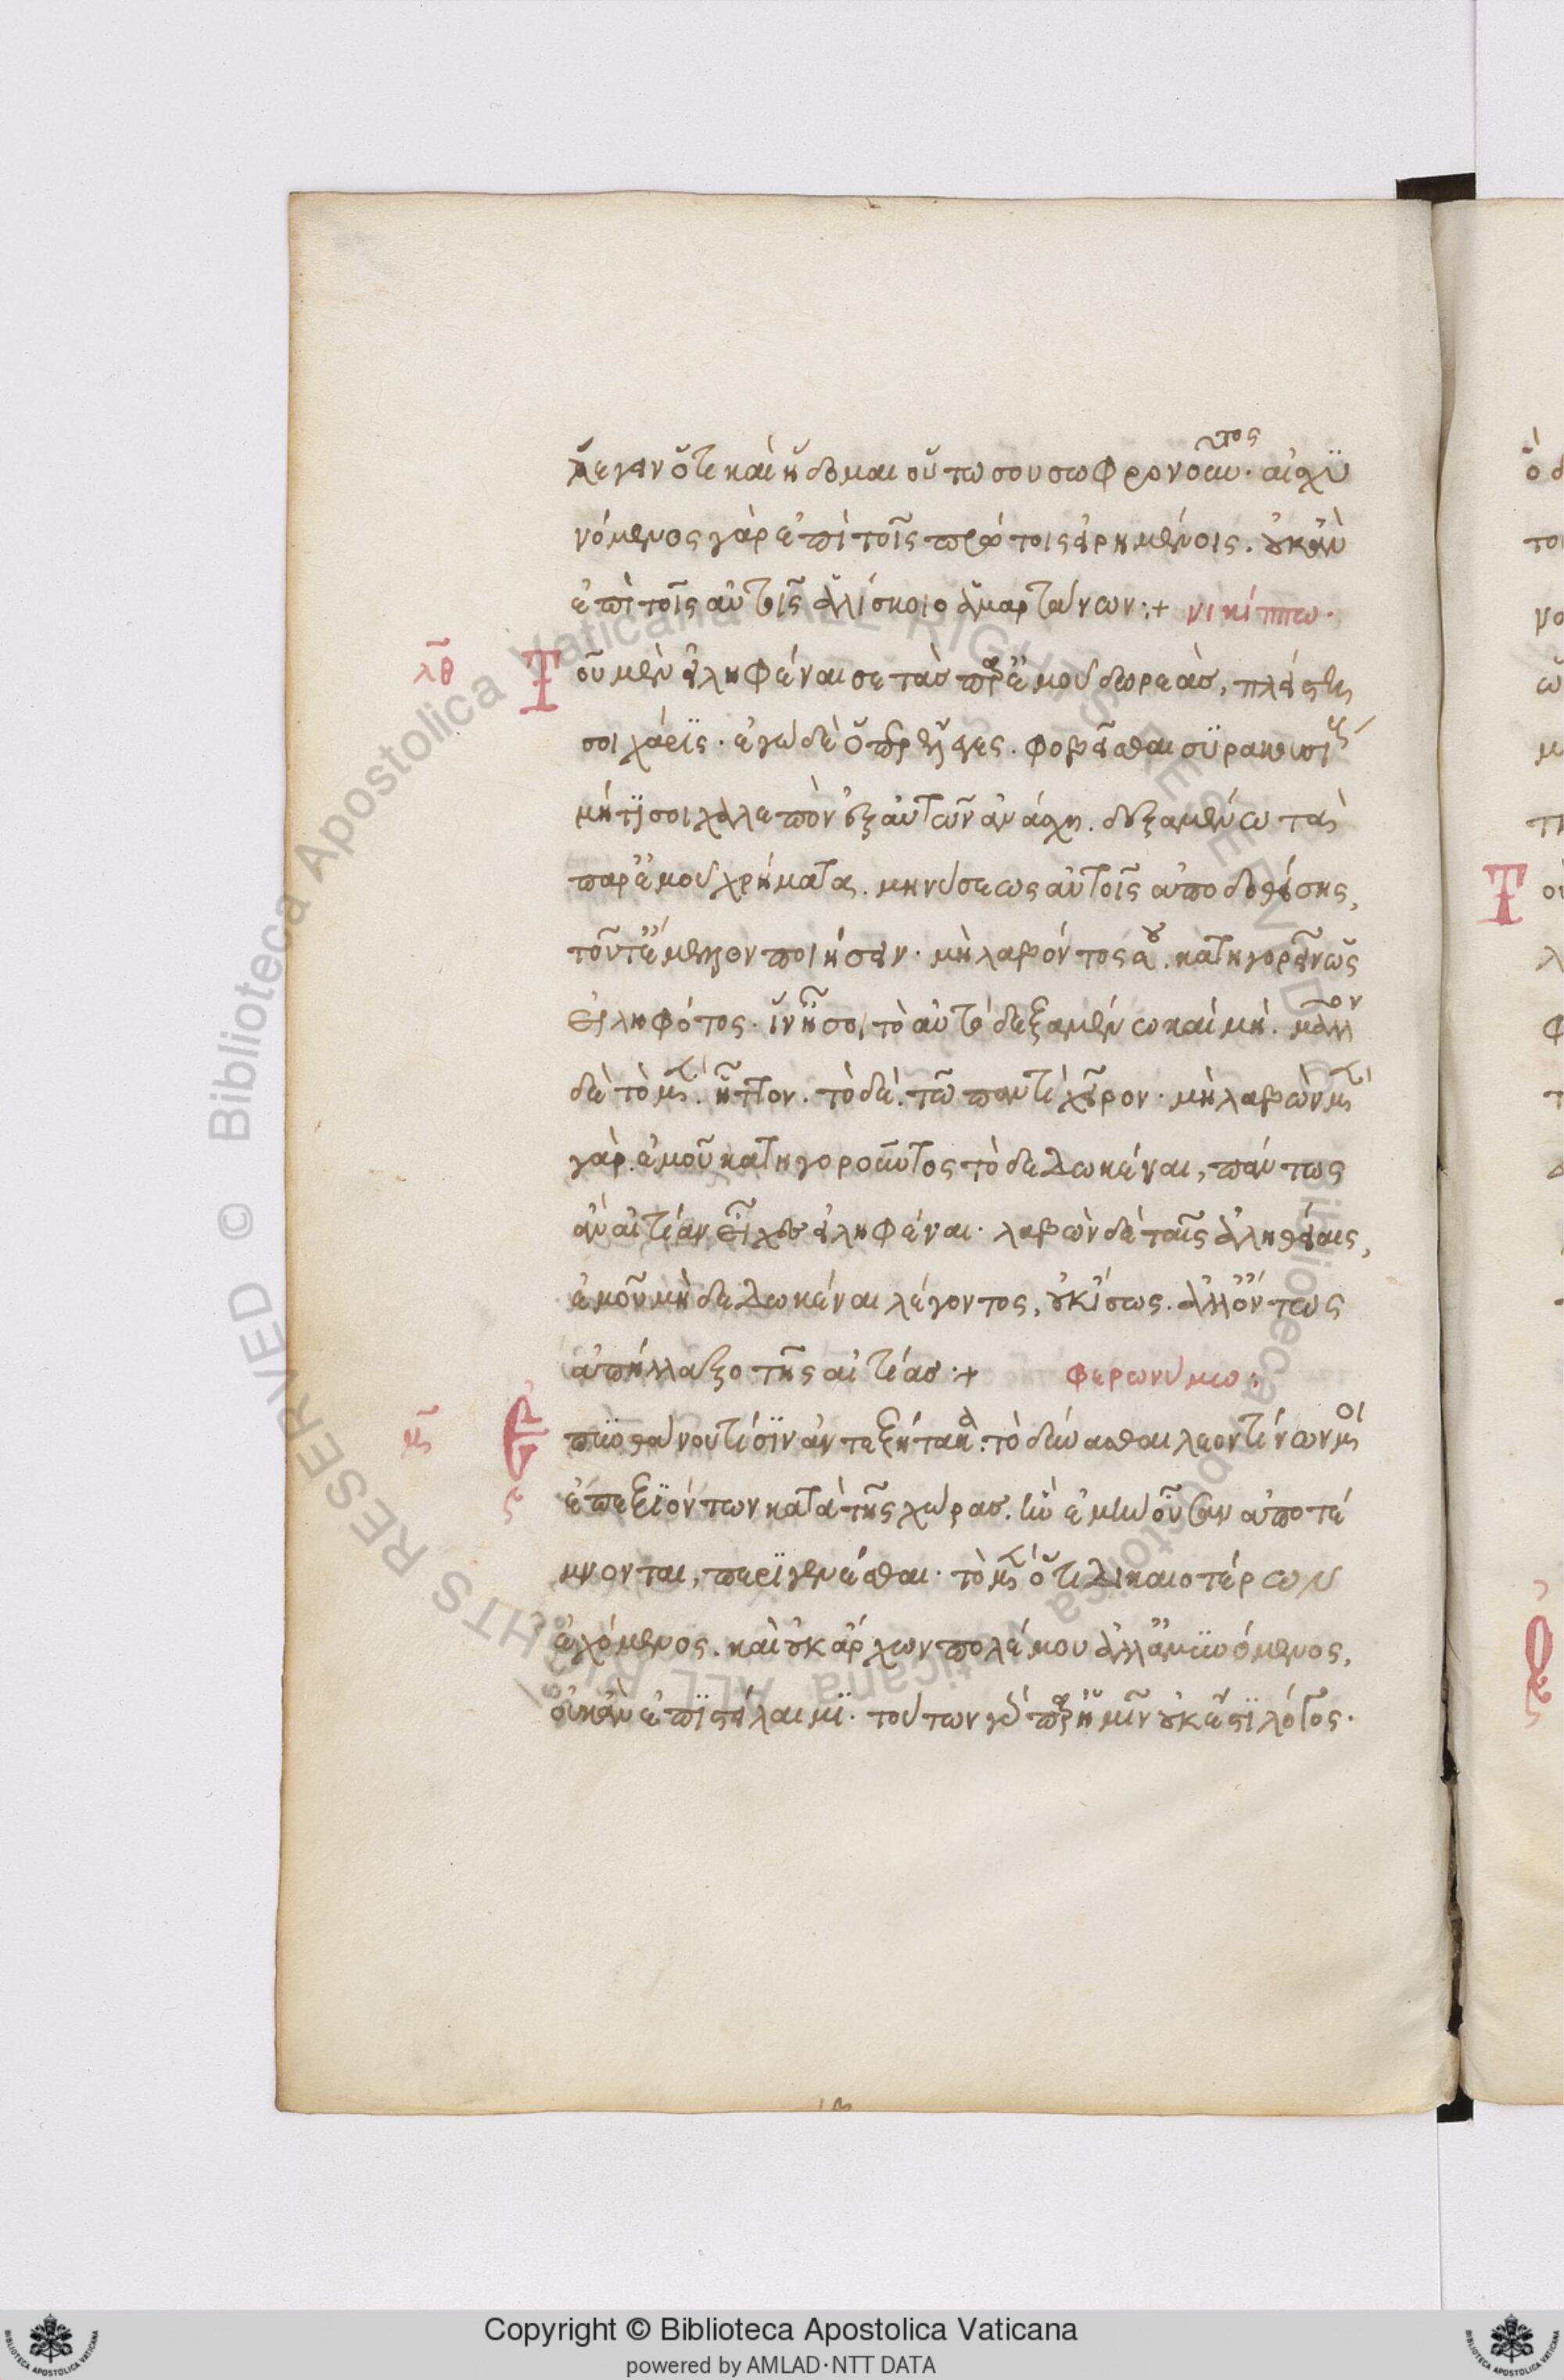 λέγειν ὅτι καὶ ἥδομαι οὕτω σου σωφρονοῦντος· αἰσχυ
νόμενος γὰρ ἐπὶ τοῖς πρώτοις εἰρημένοις. οὐκ ἂν
ἐπὶ τοῖς αὐτοῖς ἁλίσκοιο ἁμαρτάνων :+ νικίππω·
λθ Τοῦ μὲν εἰληφέναι σε τὰς παρ' ἐμοῦ δωρεὰς, πλείστη
σοι χάρις· ἐγὼ δὲ φοβεῖσθαι συρακουσί
μήτι σοι χαλεπὸν ἐξ αὐτῶν δεξαμένω τὰ
παρ' ἐμοῦ χρήματα. μηνύσεως αὐτοῖς ἀποδοθείσης,
τοῦτ' ἔμελλον ποιήσειν· μὴ λαβόντος κατηγορεῖν ὡς
εἰληφότος· ἵν' ᾖ σοι τὸ αὐτὸ δεξαμένω καὶ μή. μᾶλλον
δὲ τὸ μὲν ἧττον. τὸ δὲ τῶ παντὶ χεῖρον· μὴ λαβὼν μὲν
γὰρ. ἐμοῦ κατηγοροῦντος τὸ δεδωκέναι, πάντως
ἂν αἰτίαν εἶχες εἰληφέναι· λαβὼν δὲ ταῖς ἀληθείαις,
ἐμοῦ μὴ δεδωκέναι λέγοντος, οὐκ ἴσως. ἀλλ' ὄντως
ἀπήλλαξο τῆς αἰτίας :+ φερωνύμω:
μ
τὸ δύνασθαι λεοντίνων μοι
ἐπεξιόντων κατὰ τῆς χώρας. ἣν ἐμὴν οὖσαν ἀποτέ
μνονται, περιγενέσθαι· τὸ μὲν ὅτι δικαιοτέρων
ἐχόμενος. καὶ οὐκ ἄρχων πολέμου ἀλλ' ἀμυνόμενος,
οὐκ ἂν ἐπιστείλαιμι· τούτων γὰρ παρ' ἡμῖν οὐκ ἔστι λόγος·
Copyright © Biblioteca Apostolica Vaticana
powered by AMLAD·NTT DATA